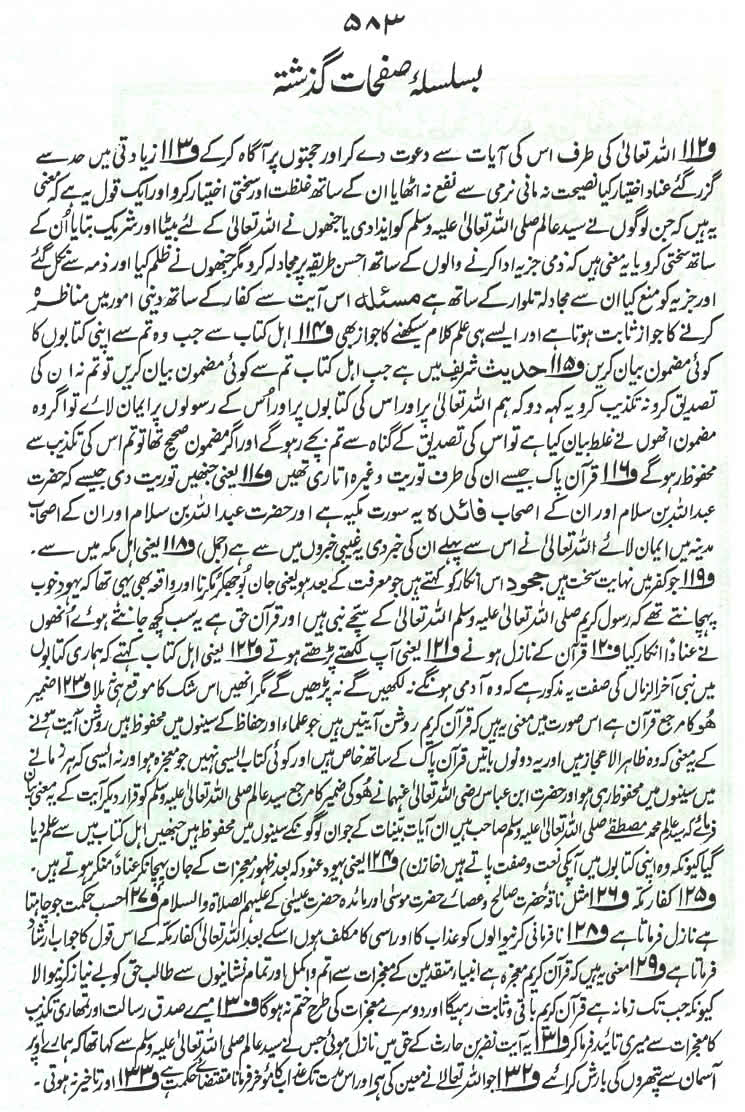 ۵۸۳
بسلسلۂ صفحات گذشتہ
و۱۱۲ اللہ تعالیٰ کی طرف اس کی آیات سے دعوت دے کر اور حجتوں پر آگاہ کر کے و۱۱۳ زیادتی میں حد سے
گزر گئے عناد اختیار کیا نصیحت نہ مانی نرمی سے نفع نہ اٹھایا ان کے ساتھ غلظت اور سختی اختیار کرو اور ایک قول یہ ہے کہ معنی
یہ ہیں کہ جن لوگوں نے سید عالم صلی اللہ تعالیٰ علیہ وسلم کو ایذا دی یا جنھوں نے اللہ تعالیٰ کے لئے بیٹا اور شریک بتایا اُن کے
ساتھ سختی کرو یا یہ معنی ہیں کہ ذمی جزیہ ادا کرنے والوں کے ساتھ احسن طریقہ پر مجادلہ کرو مگر جنھوں نے ظلم کیا اور ذمہ سے نکل گئے
اور جزیہ کو منع کیا ان سے مجادلہ تلوار کے ساتھ ہے مسئلہ اس آیت سے کفار کے ساتھ دینی امور میں مناظرہ
کرنے کا جواز ثابت ہوتا ہے اور ایسے ہی علم کلام سیکھنے کا جواز بھی و۱۱۴ اہل کتاب سے جب وہ تم سے اپنی کتابوں کا
کوئی مضمون بیان کریں و۱۱۵ حدیث شریف میں ہے جب اہل کتاب تم سے کوئی مضمون بیان کریں تو تم نہ ان کی
تصدیق کرو نہ تکذیب کرو یہ کہہ دو کہ ہم اللہ تعالیٰ پر اور اس کی کتابوں پر اور اُس کے رسولوں پر ایمان لائے تو اگر وہ
مضمون انھوں نے غلط بیان کیا ہے تو اس کی تصدیق کے گناہ سے تم بچے رہوگے اور اگر مضمون صحیح تھا تو تم اس کی تکذیب سے
محفوظ رہوگے و۱۱۶ قرآن پاک جیسے ان کی طرف توریت وغیرہ اتاری تھیں و۱۱۷ یعنی جنھیں توریت دی جیسے کہ حضرت
عبداللہ بن سلام اور ان کے اصحاب فائدہ یہ سورت مکیہ ہے اور حضرت عبداللہ بن سلام اور ان کے اصحاب
مدینہ میں ایمان لائے اللہ تعالیٰ نے اس سے پہلے ان کی خبر دی یہ غیبی خبروں میں سے ہے (جمل) و۱۱۸ یعنی اہل مکہ میں سے ۔
و۱۱۹ جو کفر میں نہایت سخت ہیں جحود اس انکار کو کہتے ہیں جو معرفت کے بعد ہو یعنی جان بوجھ کر مکرنا اور واقعہ بھی یہی تھا کہ یہود خوب
پہچانتے تھے کہ رسول کریم صلی اللہ تعالیٰ علیہ وسلم اللہ تعالیٰ کے سچے نبی ہیں اور قرآن حق ہے یہ سب کچھ جانتے ہوئے اُنھوں
نے عناداً انکار کیا و۱۲۰ قرآن کے نازل ہونے و۱۲۱ یعنی آپ لکھتے پڑھتے ہوتے و۱۲۲ یعنی اہل کتاب کہتے کہ ہماری کتابوں
میں نبی آخرالزماں کی صفت یہ مذکور ہے کہ وہ امی ہونگے نہ لکھیں گے نہ پڑھیں گے مگر انھیں اس شک کا موقع ہی نہ ملا و۱۲۳ ضمیر
ھُوَ کا مرجع قرآن ہے اس صورت میں معنی یہ ہیں کہ قرآن کریم روشن آیتیں ہیں جو علماء اور حفاظ کے سینوں میں محفوظ ہیں روشن آیت ہونے
کے یہ معنی کہ وہ ظاہر الاعجاز ہیں اور یہ دونوں باتیں قرآن پاک کے ساتھ خاص ہیں اور کوئی کتاب ایسی نہیں جو معجزہ ہو اور نہ ایسی کہ ہر زمانے
میں سینوں میں محفوظ رہی ہو اور حضرت ابن عباس رضی اللہ تعالیٰ عنہما نے ھُوَ کی ضمیر کا مرجع سید عالم صلی اللہ تعالیٰ علیہ وسلم کو قرار دیکر آیت کے یہ معنی بیان
فرمائے کہ سید عالم محمد مصطفےٰ صلی اللہ تعالیٰ علیہ وسلم صاحب ہیں ان آیات بینات کے جو ان لوگوں کے سینوں میں محفوظ ہیں جنھیں اہل کتاب میں سے علم دیا
گیا کیونکہ وہ اپنی کتابوں میں آپکی نعت و صفت پاتے ہیں (خازن) و۱۲۴ یعنی یہود عنود کہ بعد ظہور معجزات کے جان پہچانکر عناداً منکر ہوتے ہیں۔
و۱۲۵ کفار مکہ و۱۲۶ مثل ناقۂ حضرت صالح و عصائے حضرت موسیٰ اور مائدہ حضرت عیسیٰ کے علیہم الصلاۃ والسلام و۱۲۷ حسب حکمت جو چاہتا
ہے نازل فرماتا ہے و۱۲۸ نافرمانی کرنیوالوں کو عذاب کا اور اسی کا مکلف ہوں اسکے بعد اللہ تعالیٰ کفار مکہ کے اس قول کا جواب ارشاد
فرماتا ہے و۱۲۹ معنی یہ ہیں کہ قرآن کریم معجزہ ہے انبیاء متقدمین کے معجزات سے اتم و اکمل اور تمام نشانیوں سے طالب حق کو بے نیاز کرنیوالا
کیونکہ جب تک زمانہ ہے قرآن کریم باقی و ثابت رہیگا اور دوسرے معجزات کی طرح ختم نہ ہوگا و۱۳۰ میرے صدق رسالت اور تمھاری تکذیب
کا معجزات سے میری تائید فرما کر و۱۳۱ یہ آیت نضر بن حارث کے حق میں نازل ہوئی جس نے سید عالم صلی اللہ تعالیٰ علیہ وسلم سے کہا تھا کہ ہمارے اوپر
آسمان سے پتھروں کی بارش کرائیے و۱۳۲ جو اللہ تعالےٰ نے معین کی ہے اور اس مدت تک عذاب کا مؤخر فرمانا مقتضائے حکمت ہے و۱۳۳ اور تاخیر نہ ہوتی ۔